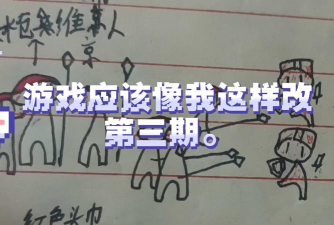 维某人
京
游戏应该像我这样改
第三期。
红色头巾